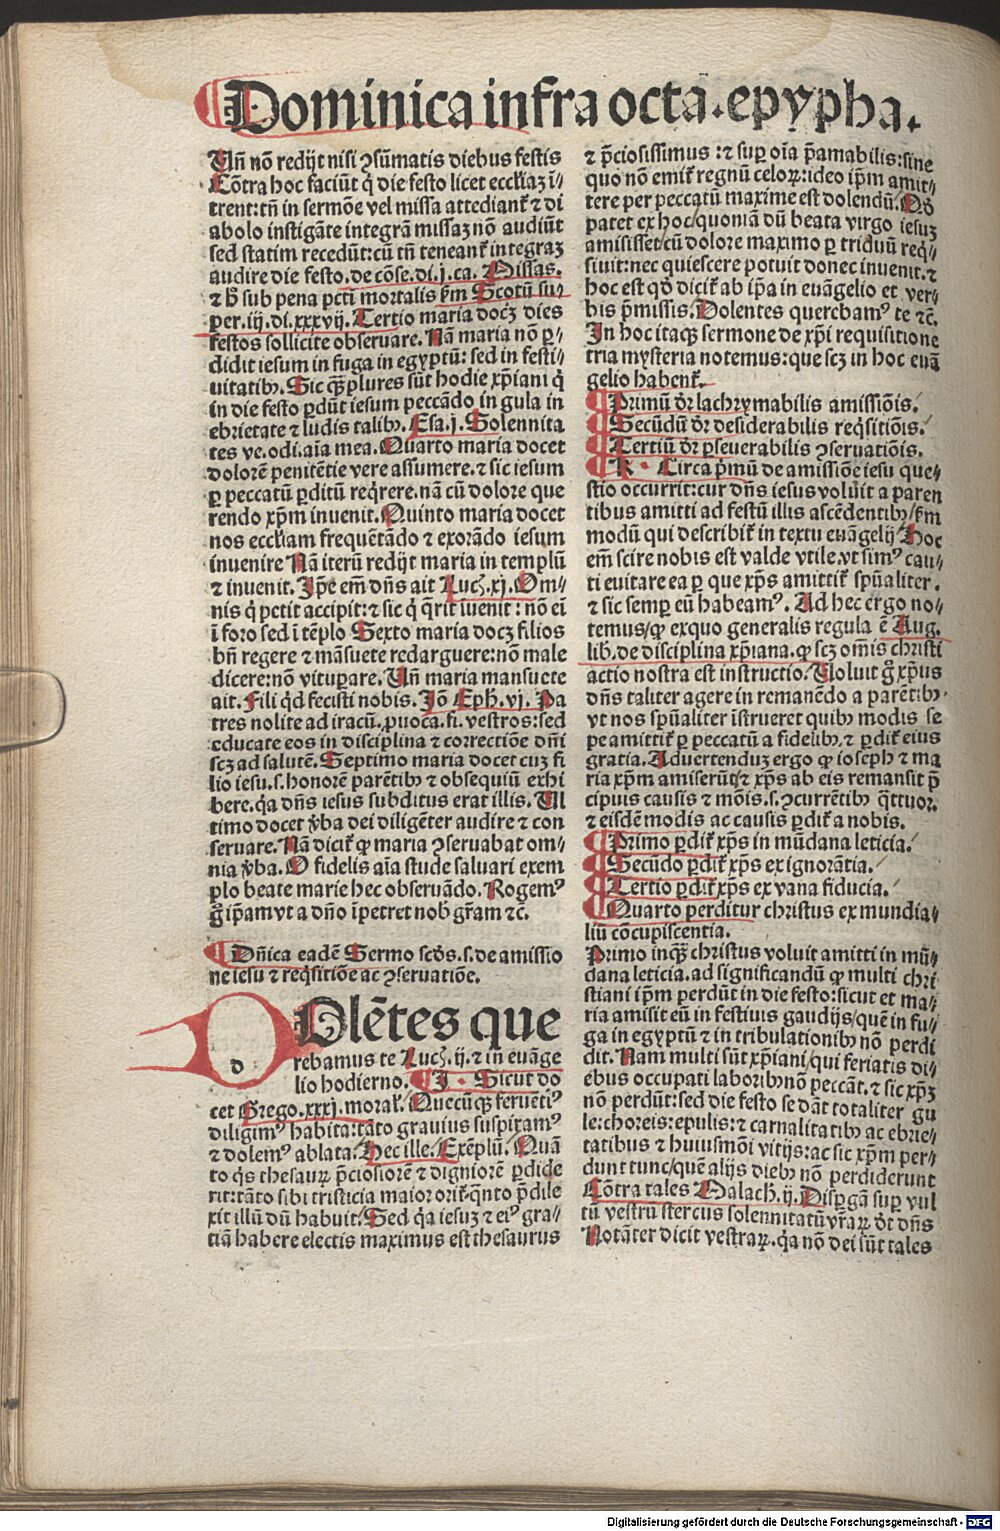 Dominica infra octa. epypha.
Uñ nō redijt nisi ꝯsūmatis diebus festis
Cōtra hoc faciūt q̇ die festo licet eccłiaꝫ ī-
trent: tñ in sermōe vel missa attediant᷑ ⁊ di
abolo instigāte integrā missaꝫ nō audiūt
sed statim recedūt: cū tñ teneant᷑ integraꝫ
audire die festo. de cōse. di. j. ca. Missas.
⁊ ħ sub pena pcti mortalis ẜm Scotū su-
per. iij. di. xxxvij. Tertio maria docꝫ dies
festos sollicite obseruare. Nā maria nō ꝑ-
didit iesum in fuga in egyptū: sed in festi-
uitatibꝰ. Sic qꝫ plures sūt hodie xp̄iani q̇
in die festo ꝑdūt iesum peccādo in gula in
ebrietate ⁊ ludis talibꝰ. Esa. j. Solennita
tes ve. odi. aīa mea. Quarto maria docet
dolorē penitētie vere assumere. ⁊ sic iesum
ꝑ peccatū ꝑditū req̇rere. nā cū dolore que
rendo xp̄m inuenit. Quinto maria docet
nos eccłiam frequētādo ⁊ exorādo iesum
inuenire Nā iterū redijt maria in templū
⁊ inuenit. Ip̄e em̄ dñs ait Luc. xj. Om-
nis q̇ petit accipit: ⁊ sic q̇ q̄rit īuenit: nō eī
ī foro sed ī tēplo Sexto maria docꝫ filios
bñ regere ⁊ māsuete redarguere: nō male
dicere: nō vituperare. Uñ maria mansuete
ait. Fili q̇d fecisti nobis. Iō Eph. vj. Pa
tres nolite ad iracū. ꝓuoca. fi. vestros: sed
educate eos in disciplina ⁊ correctiōe dñi
scꝫ ad salutē. Septimo maria docet cuꝫ fi
lio iesu. s. honorē parētibꝰ ⁊ obsequiū exhi
bere. q̇a dñs iesus subditus erat illis. Ul
timo docet v̄ba dei diligēter audire ⁊ con
seruare. Nā dicit᷑ ꝙ maria ꝯseruabat om-
nia v̄ba. O fidelis aīa stude saluari exem
plo beate marie hec obseruādo. Rogemꝰ
g̊ ip̄am vt a dño īpetret nob gr̄am ⁊c̄.
Dñica eadē Sermo scd̄s. s. de amissio
ne iesu ⁊ reqˢitiōe ac ꝯseruatiōe.
d
Olētes que
rebamus te Luc. ij. ⁊ in euāge
lio hodierno. I. Sicut do
cet Grego. xxxj. moral. Quecūqꝫ feruētiꝰ
diligimꝰ habita: tāto grauius suspiramꝰ
⁊ dolemꝰ ablata. Hec ille. Exēplū. Quā
to q̇s thesauꝝ p̄ciosiorē ⁊ digniorē ꝑdide
rit: tāto sibi tristicia maior orit᷑ qnto p̄dile
xit illū dū habuit. Sed q̇a iesuꝫ ⁊ eiꝰ gra-
tiā habere electis maximus est thesaurus
⁊ p̄ciosissimus: ⁊ suꝑ oīa p̄amabilis: sine
quo nō emit᷑ regnū celoꝝ: ideo ip̄m amit-
tere per peccatū maxime est dolendū. Qd̄
patet ex hoc/ quoniā dū beata virgo iesuꝫ
amisisset/ cū dolore maximo ꝑ triduū reqˢ-
siuit: nec quiescere potuit donec inuenit. ⁊
hoc est qd̄ dicit᷑ ab ip̄a in euāgelio et ver-
bis p̄missis. Dolentes querebamꝰ te ⁊c̄.
In hoc itaqꝫ sermone de xp̄i requisitione
tria mysteria notemus: que scꝫ in hoc euā
gelio habent᷑.
Primū dr̄ lachrymabilis amissiōis.
Secūdū dr̄ desiderabilis reqˢitiōis.
Tertiū dr̄ ꝑseuerabilis ꝯseruatiōis.
R. Circa pˢmū de amissiōe iesu que-
stio occurrit: cur dñs iesus voluit a paren
tibus amitti ad festū illis ascēdentibꝰ/ ẜm
modū qui describit᷑ in textu euāgelij Hoc
em̄ scire nobis est valde vtile. vt simꝰ cau-
ti euitare ea ꝑ que xp̄s amittit᷑ spūaliter.
⁊ sic semꝑ eū habeamꝰ. Ad hec ergo no-
temus/ ꝙ exquo generalis regula ē Aug.
lib. de disciplina xp̄iana. ꝙ scꝫ om̄is christi
actio nostra est instructio. Uoluit g̊ xp̄us
dñs taliter agere in remanēdo a parētibꝰ
vt nos spūaliter īstrueret quibꝰ modis se
pe amittit᷑ ꝑ peccatū a fidelibꝰ, ⁊ ꝑdit᷑ eius
gratia. Aduertenduꝫ ergo ꝙ ioseph ⁊ ma
ria xp̄m amiserūt/ ⁊ xp̄s ab eis remansit p̄
cipuis causis ⁊ mōis. s. ꝯcurrētibꝰ q̄ttuor.
⁊ eisdē modis ac causis ꝑdit᷑ a nobis.
Primo ꝑdit᷑ xp̄s in mūdana leticia.
Secūdo ꝑdit᷑ xp̄s ex ignorātia.
Tertio ꝑdit᷑ xp̄s ex vana fiducia.
Quarto perditur christus ex mundia-
liū cōcupiscentia.
Primo inqꝫ christus voluit amitti in mū-
dana leticia. ad significandū ꝙ multi chri
stiani ip̄m perdūt in die festo: sicut et ma-
ria amisit eū in festiuis gaudijs/ quē in fu-
ga in egyptū ⁊ in tribulationibꝰ nō perdi
dit. Nam multi sūt xp̄iani/ qui feriatis di-
ebus occupati laboribꝰ nō peccāt. ⁊ sic xp̄ꝫ
nō perdūt: sed die festo se dāt totaliter gu
le: choreis: epulis: ⁊ carnalitatibꝰ ac ebrie-
tatibus ⁊ huiusmōi vitijs: ac sic xp̄m per-
dunt tunc/ quē alijs diebꝰ nō perdiderunt
Cōtra tales Malach. ij. Disꝑgā suꝑ vul
tū vestrū stercus solennitatū vr̄aꝝ dt̄ dñs
Notāter dicit vestraꝝ. q̇a nō dei sūt tales
Digitalisierung gefördert durch die Deutsche Forschungsgemeinschaft - DFG